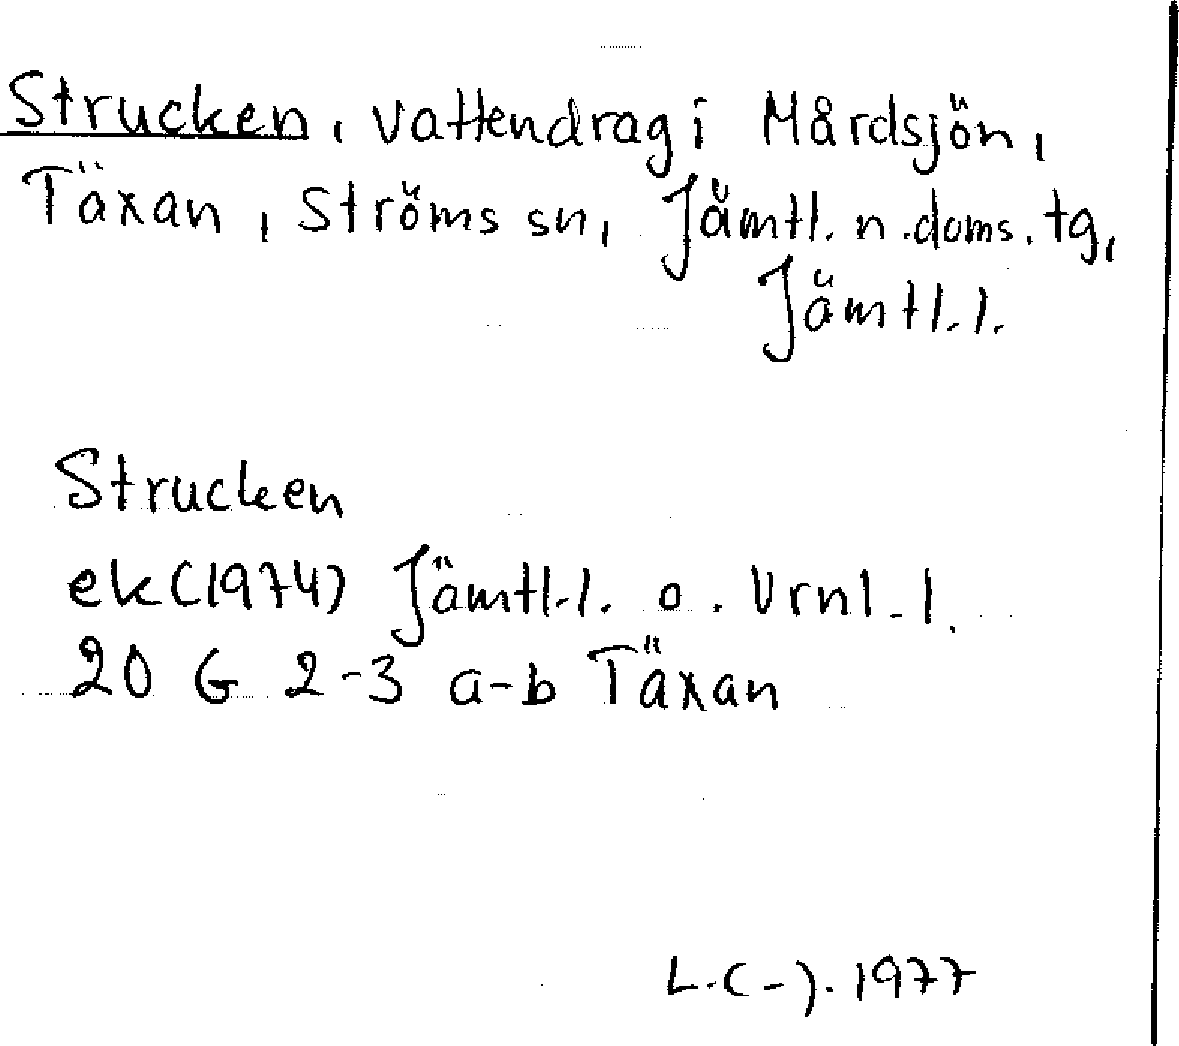 Strucken, vattendrag i Mårdsjön,
Täxan, Ströms sn, Jämtl. n. doms. tg,
Jämtl. l.
Strucken
ek (1974) Jämtl. l. o. Vrnl. l.
20 G 2-3 a-b Täxan
L. (-). 1977